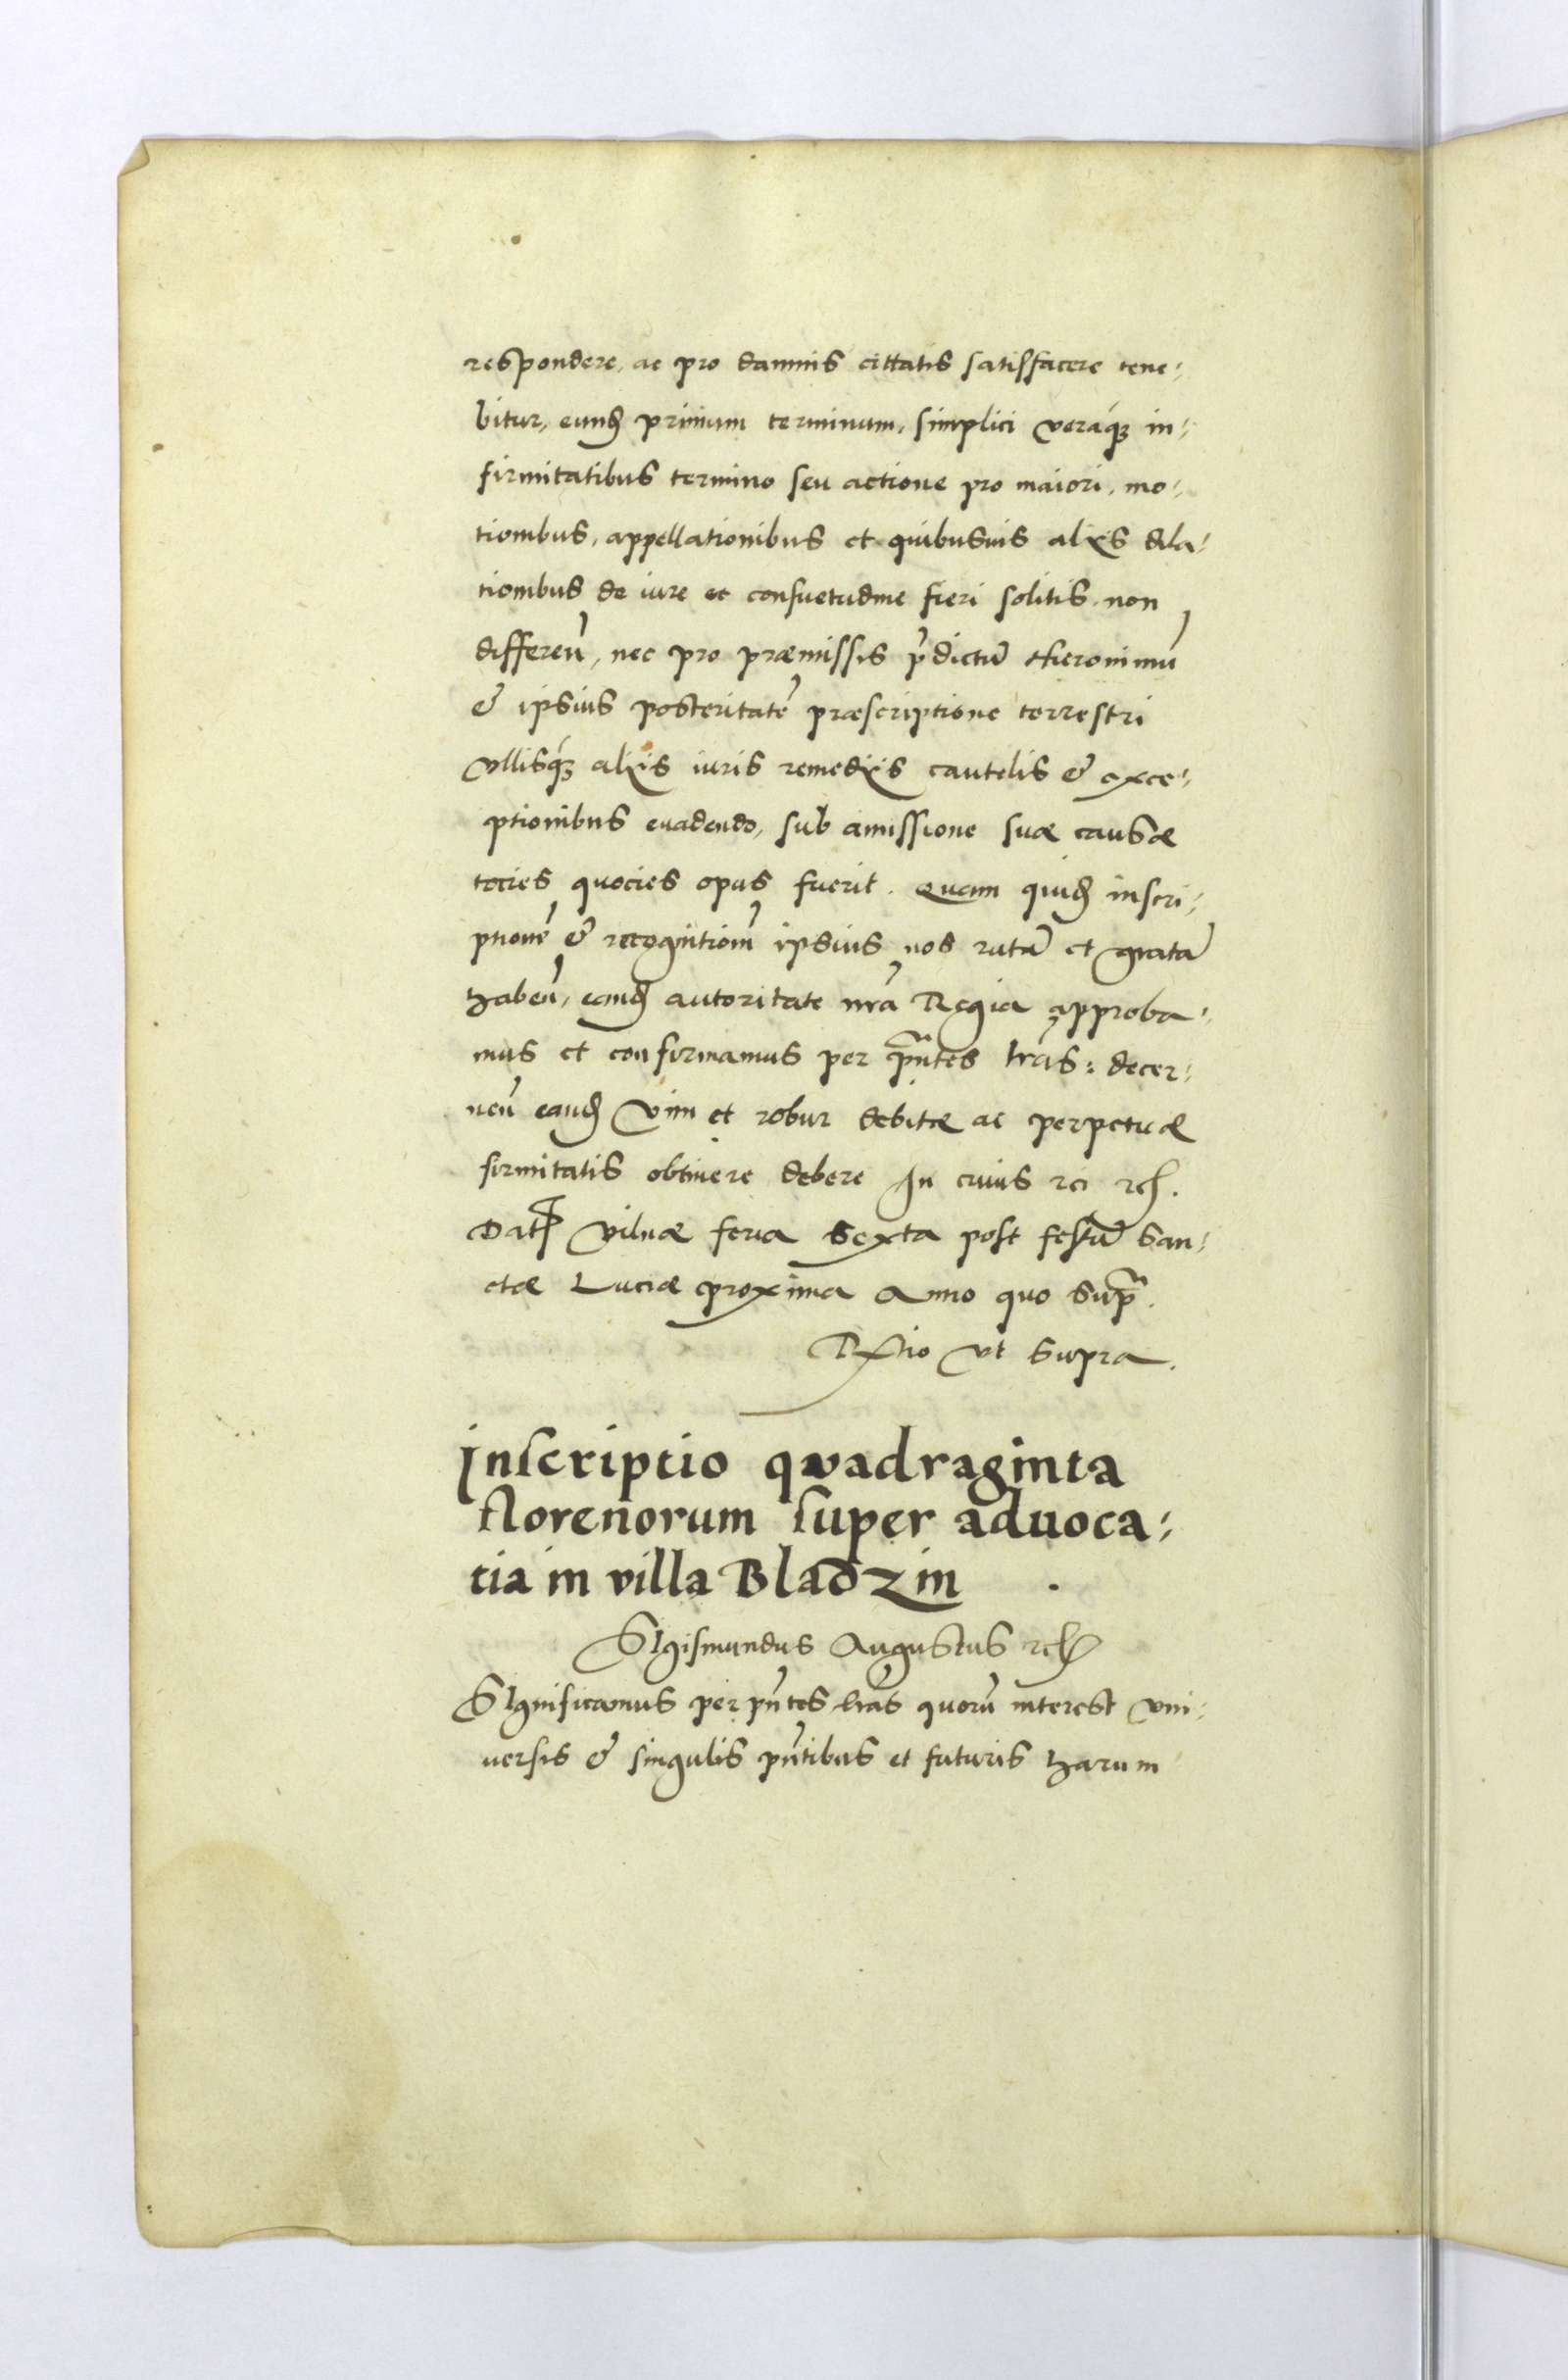 respondere, ac pro damnis cittatis satisfacere tene-
bitur, eunđ primum terminum, simplici veraq́ꝫ in-
firmitatibus termino seu actione pro maiori, mo-
tionibus, appellationibus et quibusuis alijs dila-
tionibus de iure et consuetudine fieri solitis non
differeñ, nec pro præmissis p̃dictũ Hieronimũ
& ipsius posteritatẽ præscriptione terrestri
vllisq́ꝫ alijs iuris remedijs cautelis & exce-
ptionibus euadendo, sub amissione suæ causæ
tocies quocies opus fuerit. Quam quiđ inscri-
ptionẽ & recognitionẽ ipsius nos ratã et gratã
habeñ, eanđ autoritate nr̃a Regia approba-
mus et confirmamus per p̃ñtes lr̃as: decer-
neñ eanđ vim et robur debitæ ac perpetuæ
firmitatis obtinere debere In cuius rei ꝛcꝭ.
Datꝭ Vilnæ feria sexta post festũ San-
ctæ Luciæ proxima Anno quo supr̃.
Rĩtio vt supra.
Inscriptio quadraginta
florenorum super aduoca-
tia in villa Bladzin.
SIgismundus Augustus ꝛcꝭ
SIgnificamus per pñtes lr̃as quorũ interest vni-
uersis & singulis pñtibus et futuris harum